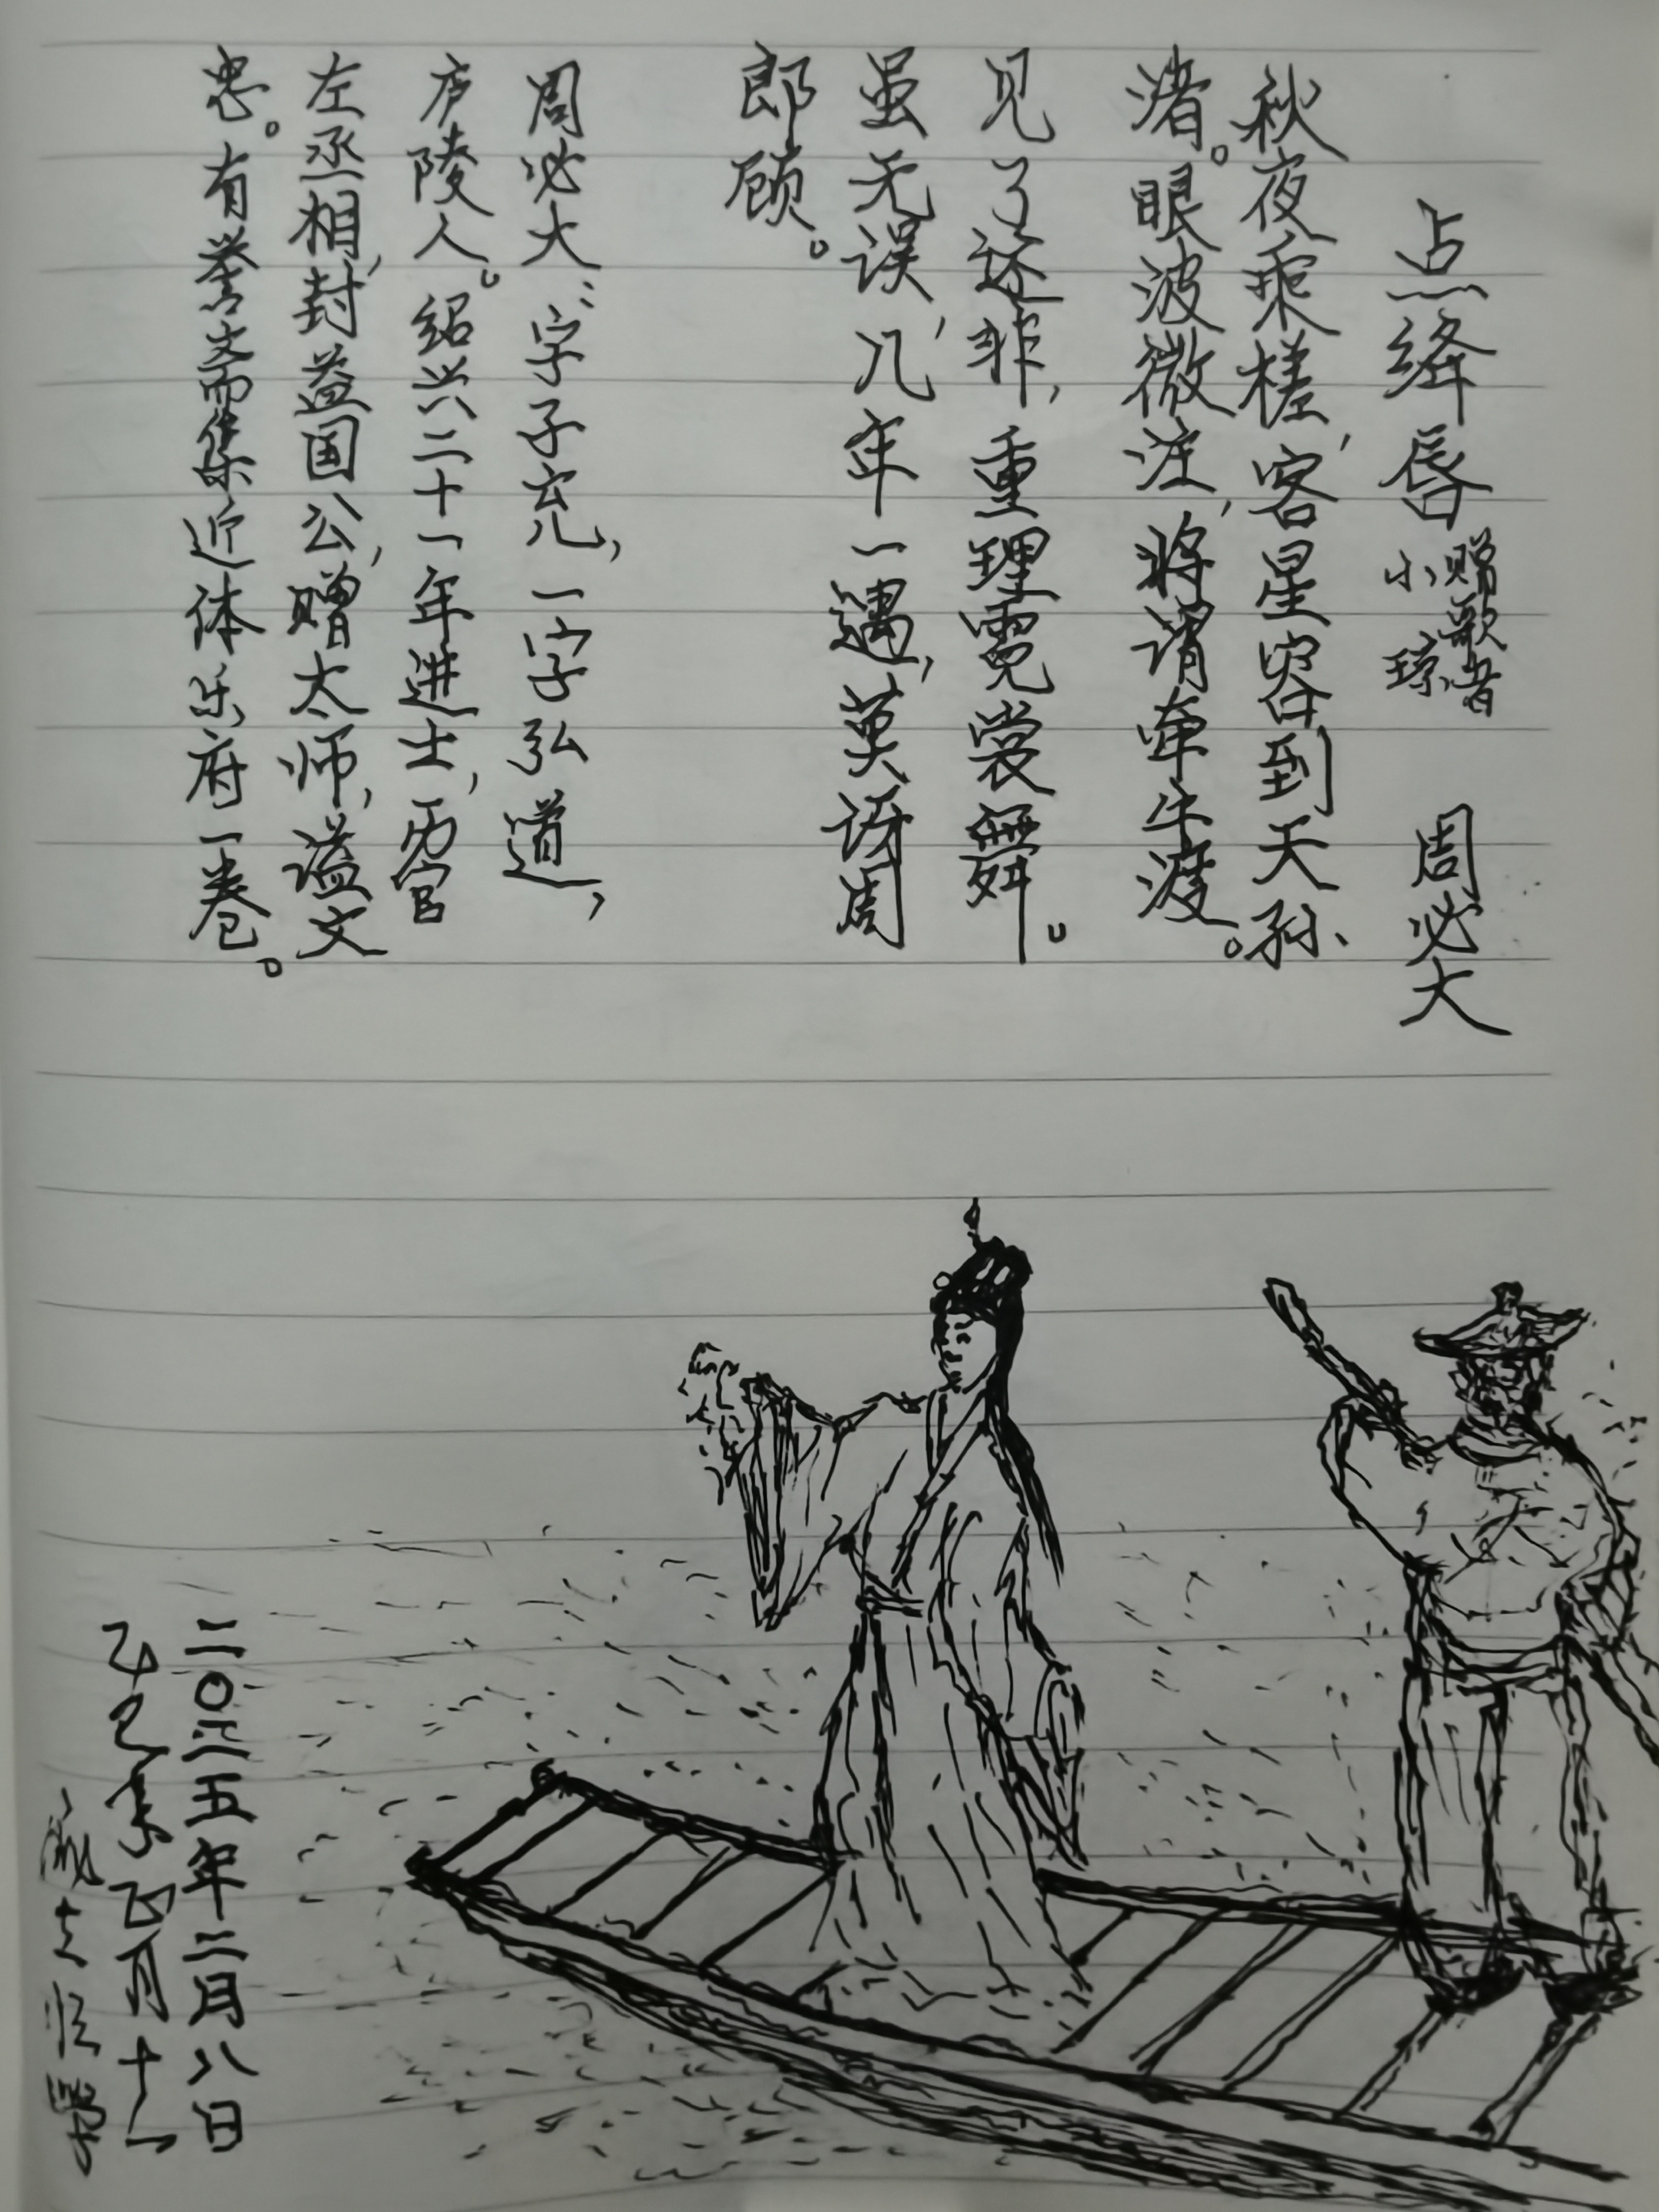 点绛唇 赠歌者小琼 周必大
秋夜乘槎，客星容到天孙
渚。眼波微注，将谓牵牛渡。
见了还非，重理霓裳舞。
虽无误，几年一遇，莫讶周
郎顾。
周必大：字子充，一字弘道，
庐陵人。绍兴二十一年进士，历官
左丞相，封益国公，赠太师，谥文
忠。有
斋集近体乐府一卷。
二〇二五年二月八日
乙巳年正月十一